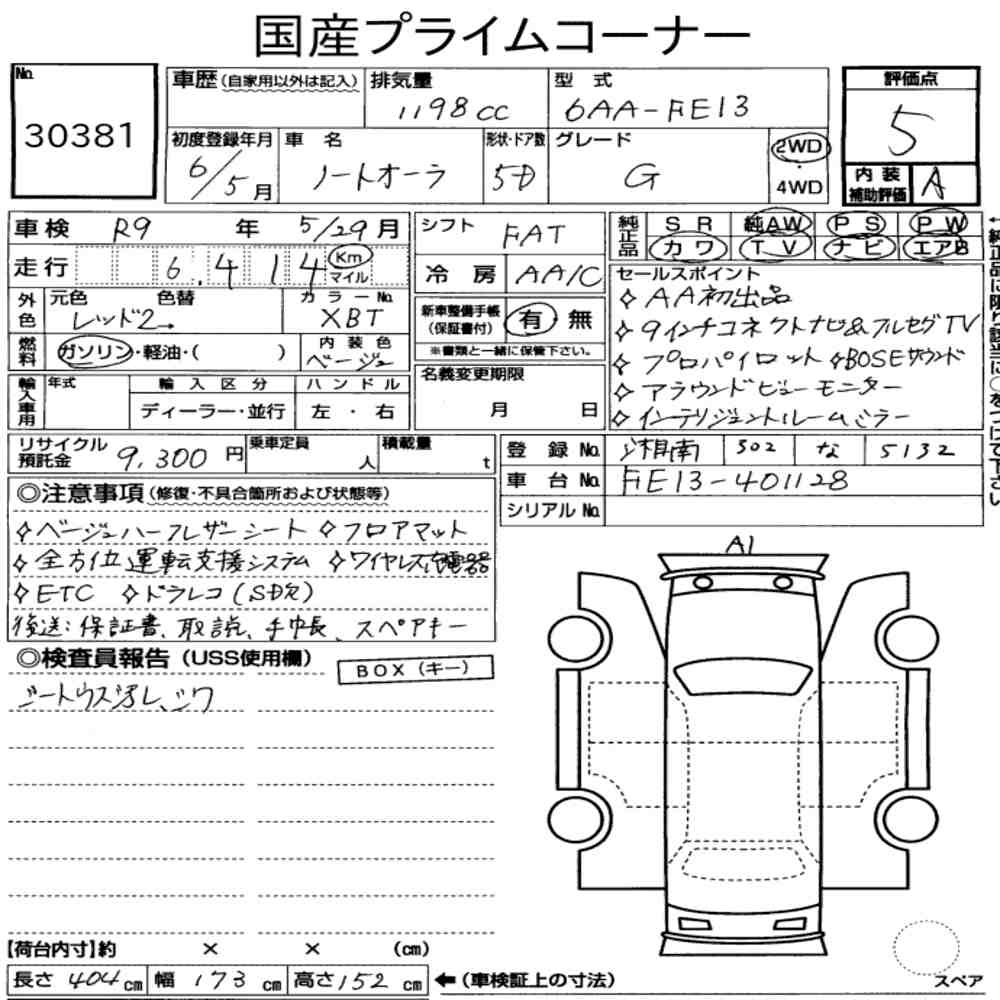 国産プライムコーナー
No.
30381
車歴(自家用以外は記入)
排気量
1198cc
型式
6AA-FE13
評価点
5
初度登録年月
6/5月
車名
ノートオーラ
形状・ドア数
5D
グレード
G
2WD
・
4WD
内装補助評価
A
車検 R9 年 5/29月
走行 6.414 Km マイル
シフト FAT
冷房 AA/C
純正品 SR 純AW PS PW
カワ TV ナビ エアB
外色 元色 色替 カラーNo.
レッド2→ XBT
燃料 ガソリン・軽油・( )
内装色
ベージュ
新車整備手帳(保証書付) 有 無
※書類と一緒に保管下さい。
名義変更期限
月 日
セールスポイント
◇AA初出品
◇9インチコネクトナビ&フルセグTV
◇プロパイロット ◇BOSEサウンド
◇アラウンドビューモニター
◇インテリジェントルームミラー
←純正品に限り該当に○をつけて下さい
輸入車用 年式 輸入区分 ハンドル
ディーラー・並行 左・右
リサイクル預託金 9,300円
乗車定員 人
積載量 t
登録No. 湘南 502 な 5132
車台No. FE13-401128
シリアルNo.
◎注意事項(修復・不具合箇所および状態等)
◇ベージュハーフレザーシート ◇フロアマット
◇全方位運転支援システム ◇ワイヤレス充電器
◇ETC ◇ドラレコ(SD欠)
後送:保証書、取説、手帳、スペアキー
◎検査員報告(USS使用欄)
BOX(キー)
シートウス汚レ、シワ
A1
【荷台内寸】約 × × (cm)
長さ 404cm 幅 173cm 高さ152cm
←(車検証上の寸法)
スペア